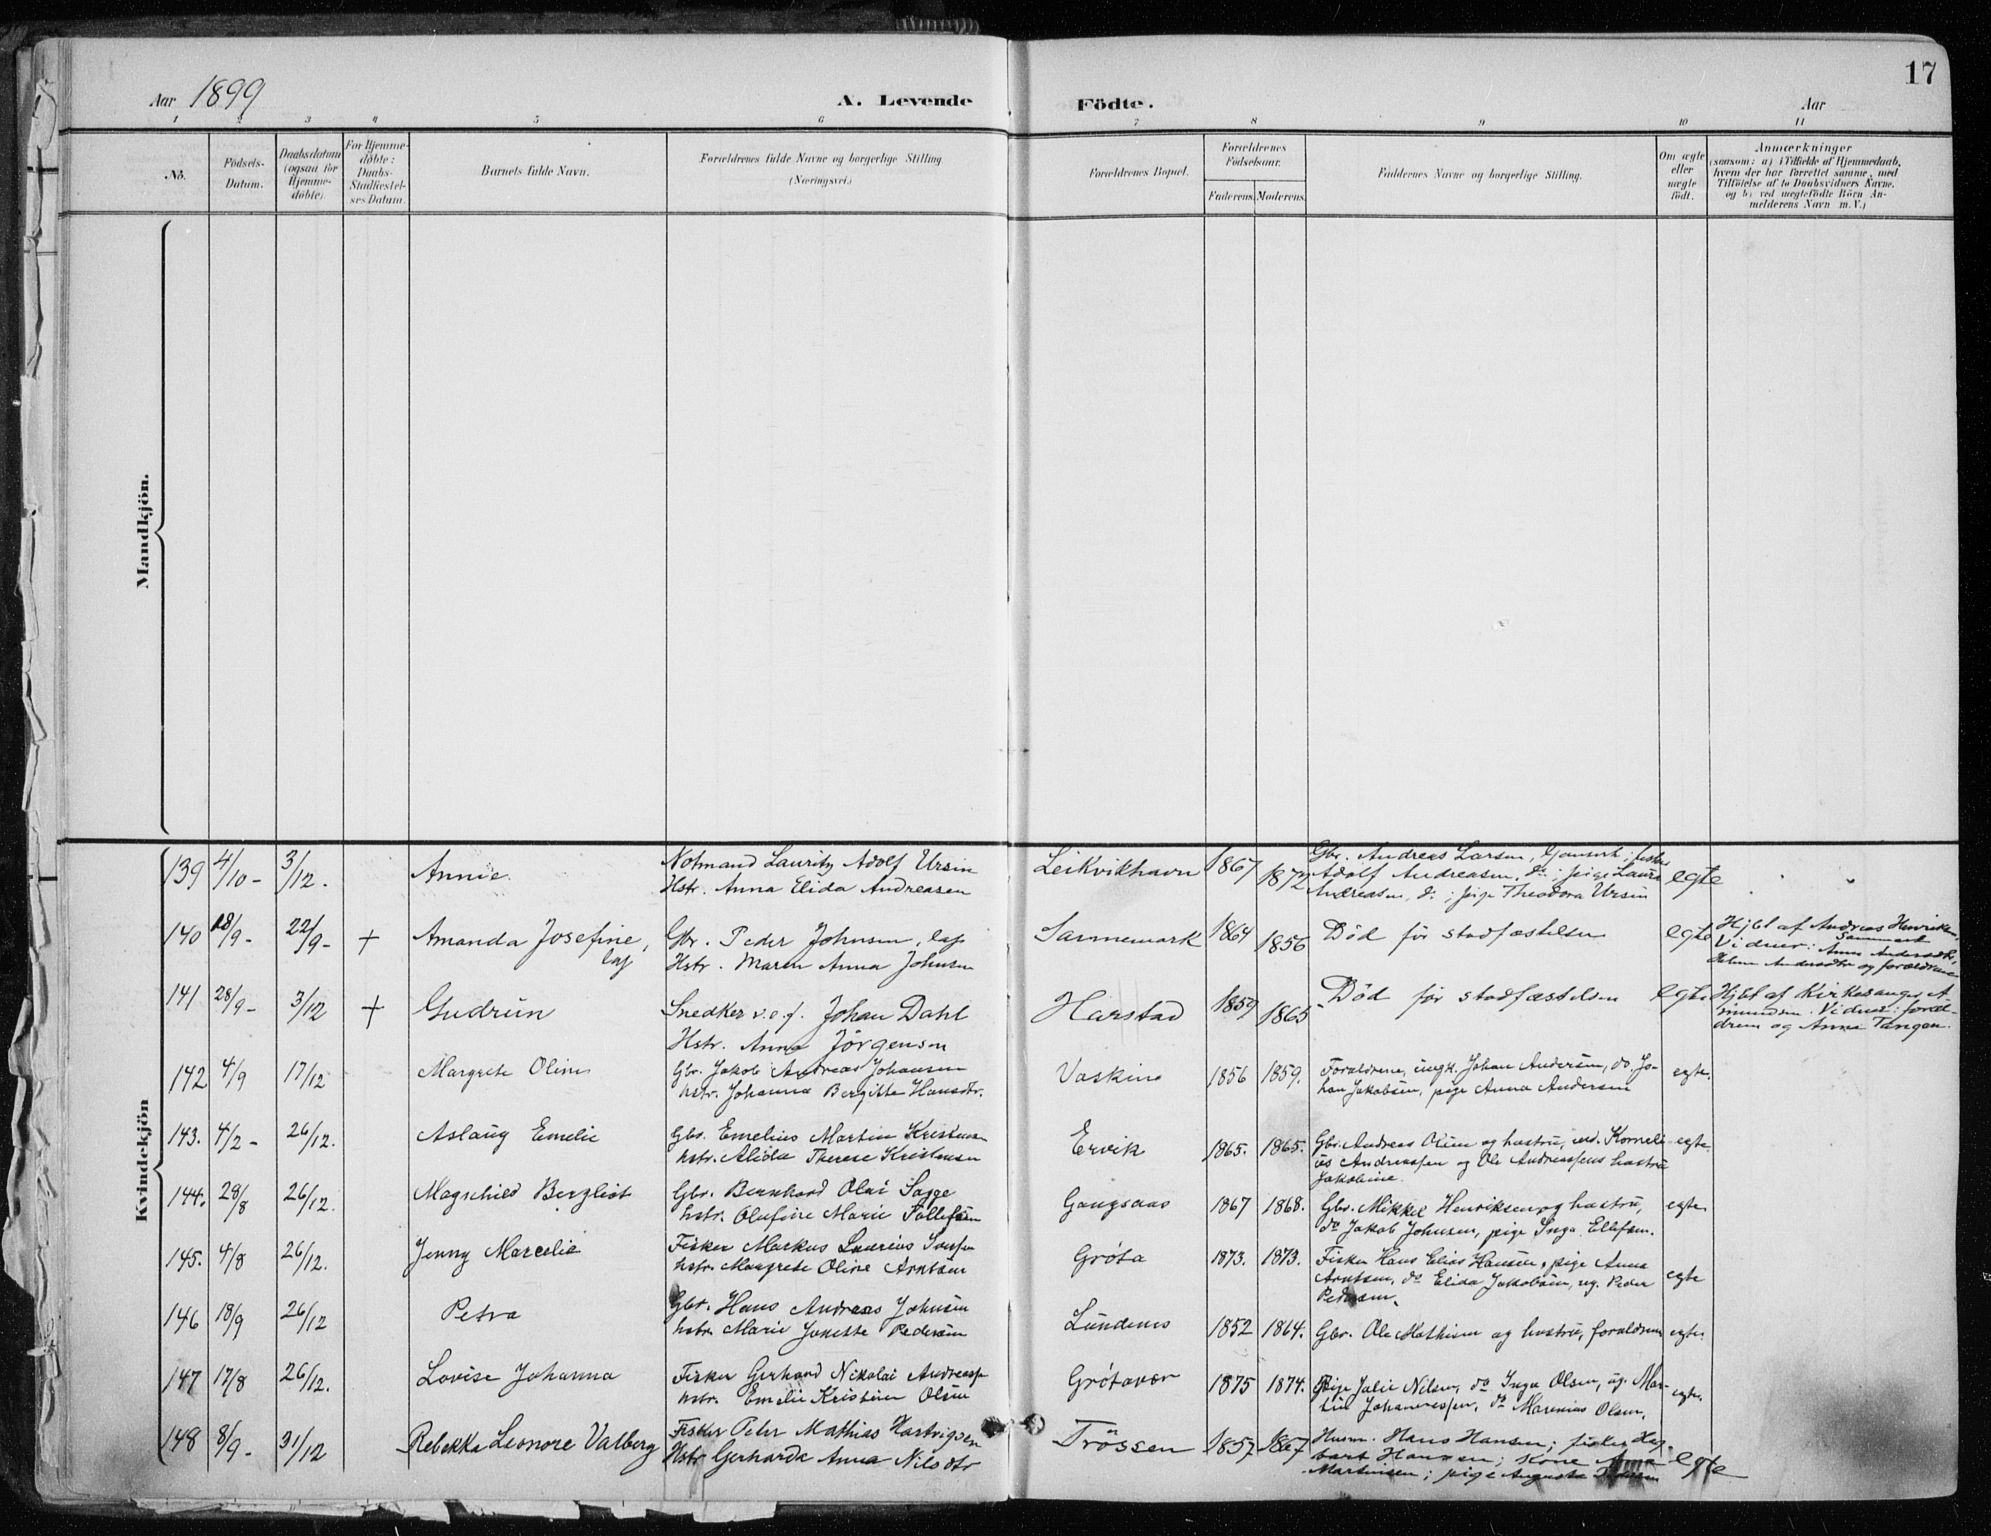 17
Aar 1899 A. Levende Födte. Aar
1 2 3 4 5 6 7 8 9 10 11
No.
Födsels-
Datum.
Daabsdatum
(ogsaa for
Hjemme-
döbte).
For Hjemme-
döbte:
Daabs-
Stadfæstel-
ses Datum.
Barnets fulde Navn.
Forældrenes fulde Navne og borgerlige Stilling.
(Næringsvei.)
Forældrenes Bopæl.
Forældrenes
Födselsaar.
Faderens. Moderens.
Faddernes Navne og borgerlige Stilling.
Om ægte
eller
uægte
födt.
Anmærkninger
(saasom: a) i Tilfælde af Hjemmedaab,
hvem der har forrettet samme, med
Tilföielse af to Daabsvidners Navne,
og b) ved uægtefödte Börn An-
melderens Navn m. V.)
Mandkjön.
Kvindekjön
139 4/10 - 3/12. Annie. Notmand Lauritz Adolf Ursin
Hstr. Anna Elida Andreasen
Leikvikhavn 1867 1872
Gbr. Andreas Larsen,
Adolf Andreasen, do; pige Laura
Andreasen, do; pige Theodora Ursin
egte
140 18/9 - 22/9 - + Amanda Josefine, lap
Gbr. Peder Johnsen, lap
Hstr. Maren Anna Johnsen
Sannemark 1864 1856 Död för stadfæstelsen egte
Hjbt af Andreas Henriksen,
Sanmark
Vidner: Anna Andersdtr,
og forældrene
141 28/9 - 3/12 + Gudrun
Snedker v.e.f. Johan Dahl
Hstr. Anna Jörgensen
Harstad 1859 1865 Död för stadfæstelsen egte
Hjbt af Kirkesanger A-
mundsen. Vidner: foræl-
drene og Anna Tangen.
142 4/9 17/12 Margrete Oline
Gbr. Jakob Andreas Johansen
hstr. Johanna Bergitte Hansdtr.
Vaskinn 1856 1859.
Forældrene, ungk. Johan Andersen, do. Jo-
han Jakobsen, pige Anna Andersen
egte.
143. 4/2 - 26/12. Aslaug Emelie
Gbr. Emelius Martin Kristensen
hstr. Alida Therese Kristensen
Ervik 1865. 1865.
Gbr. Andreas Olsen og hustru, Korneli-
us Andreassen og Ole Andreassens hustru
Jakobine.
egte
144. 28/8 26/12. Magnhild Bergliot
Gbr. Bernhard Olai
hstr. Olufine Marie Tollefsen
Gangsaas 1867 1868.
Gbr. Mikkel Henriksen og hustru,
do Jakob Johnsen, pige Inga Ellefsen.
egte
145. 4/8 26/12. Jenny Marcelie
Fisker Markus Laurius
hstr. Margrete Oline Arntsen
Gröta 1873. 1873.
Fisker Hans Elias Hansen, pige Anna
Arntsen, do Elida Jakobsen, ug. Peder
Pedersen.
egte
146 18/9 26/12 Petra
Gbr. Hans Andreas Johnsen
hstr. Marie Jonette Pedersen
Lundenes 1852 1864. Gbr. Ole Mathisen og hustru, forældrene egte.
147 17/8 26/12. Lovise Johanna
Fisker Gerhard Nikolai Andreass.
hstr. Emelie Kristine Olsen
Grötavær 1875 1874.
Pige Julie Nilsen, do Inga Olsen, ug. Mar-
tin Johannessen, do Marenius Olsen.
egte.
148 8/9 - 31/12 Rebekka Leonore Valberg
Fisker Peter Mathias Hartvigsen
Hstr Gerharda Anna Nilsdtr
Trössen 1857 1867
Husm. Hans Hansen; fisker Hag-
bart Hansen; Kone Anna
Martinsen; pige Augusta
egte